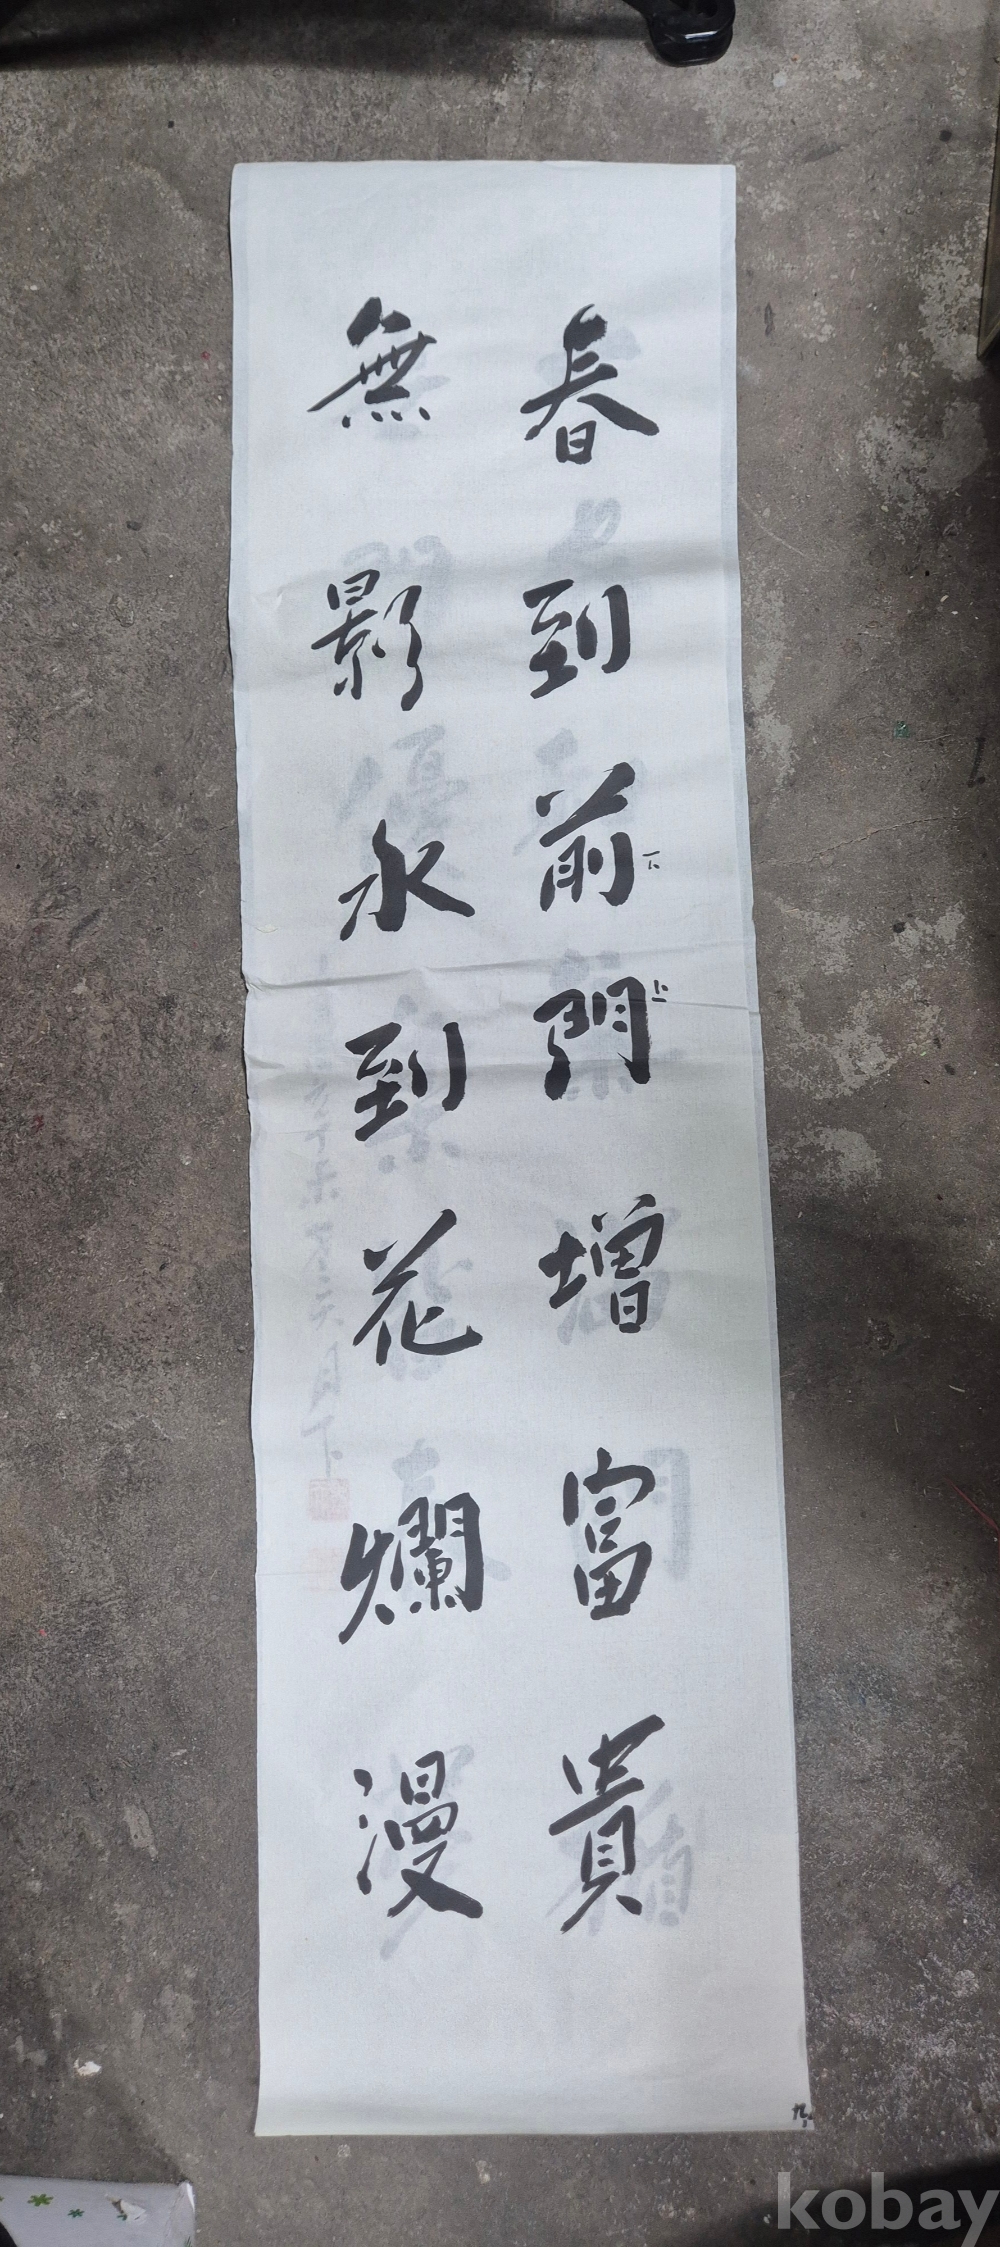 春到前下門上增富貴
無影水到花爛漫
kobay